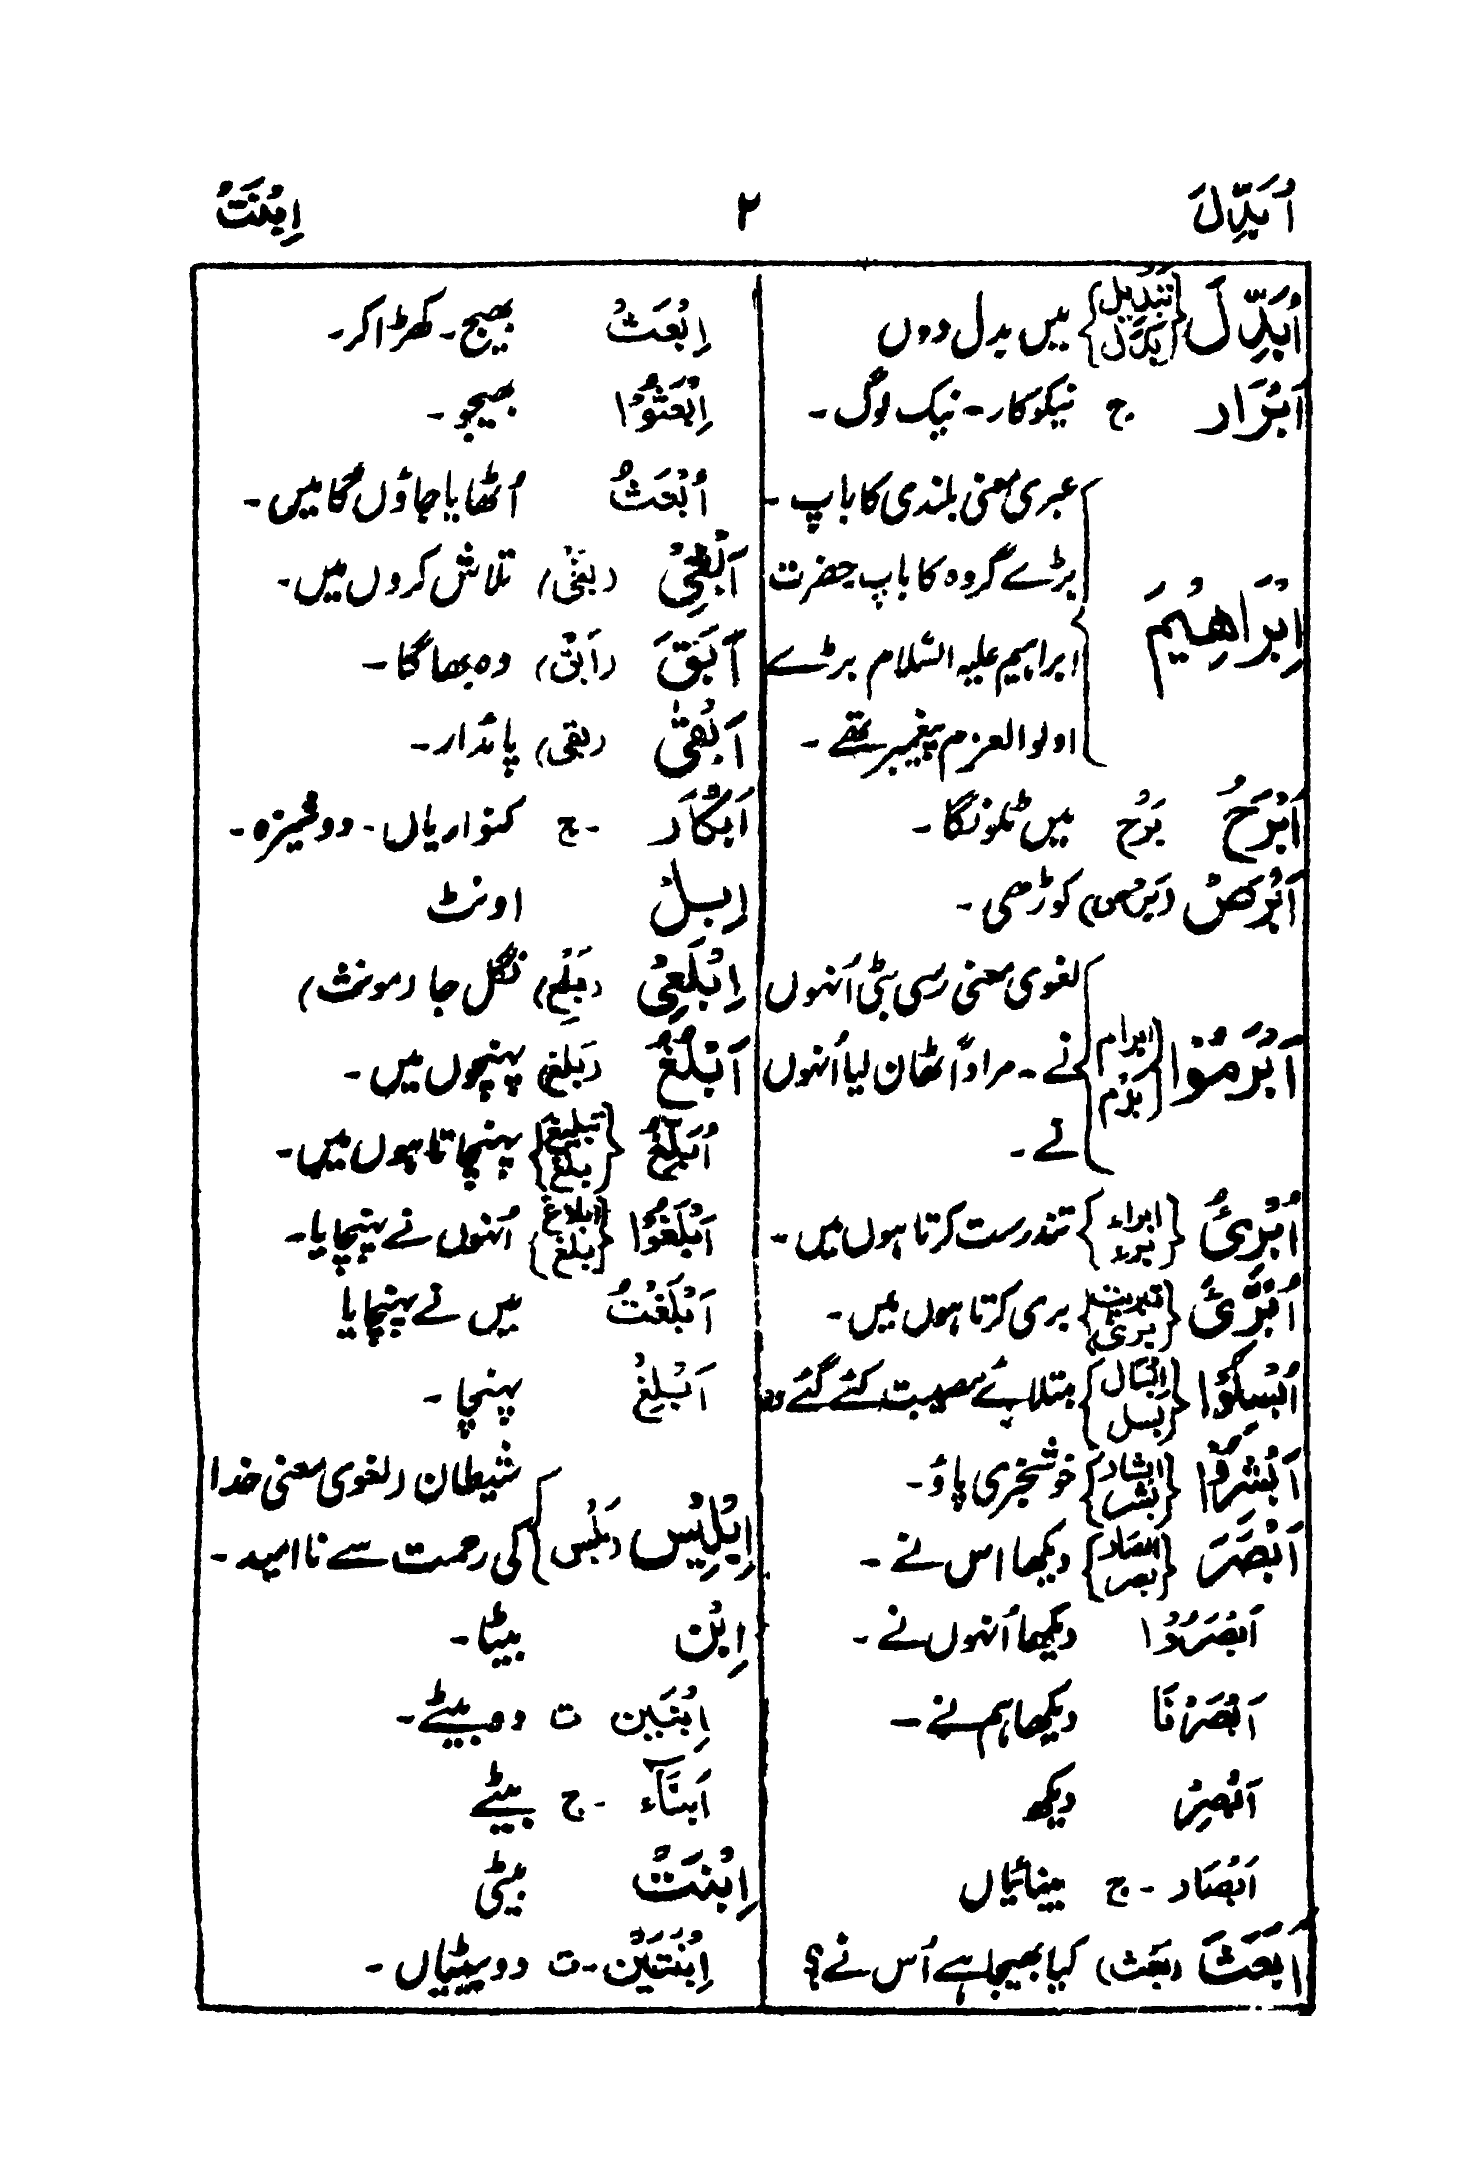 اُبَدِّلَ ۲ اِبْنَتُ
اُبَدِّلَ {تَبْدِیل بَدَّلَ} میں بدل دوں
اَبْرَار ج نیکوکار - نیک لوگ -
عبری معنی بلندی کا باپ -
بڑے گروہ کا باپ حضرت
اِبْرَاهِیْمَ
ابراہیم علیہ السّلام بڑے
اولوالعزم پیغمبر تھے -
اَبْرَحُ بَرُحَ میں ٹلونگا -
اَبْرَصْ (بَرَص) کوڑھی -
لغوی معنی رسی بٹی اُنہوں
اَبْرَمُوْا {ابرام بَرَم} نے - مراداً ٹھان لیا اُنہوں
نے -
اُبْرِیُٔ {ابراء برء} تندرست کرتا ہوں میں -
اُبَرِّیُٔ {تبریت بریٔ} بری کرتا ہوں میں -
اُبْسِلُوْا {ابسال بسل} مبتلائے مصیبت کئے گئے وہ
اَبْشِرُوْا {ابشار بشر} خوشخبری پاؤ -
اَبْصَرَ {ابصار بصر} دیکھا اس نے -
اَبْصَرُوْا دیکھا اُنہوں نے -
اَبْصَرْنَا دیکھا ہم نے -
اَبْصِرْ دیکھ
اَبْصَار - ج بینائیاں
اَبَعَثَ (بَعَث) کیا بھیجا ہے اُس نے؟
اِبْعَثْ بھیج - کھڑا کر -
اِبْعَثُوْا بھیجو -
اُبْعَثُ اُٹھایا جاؤں گا میں -
اَبْغِیْ (بغی) تلاش کروں میں -
اَبَقَ (اَبَقْ) وہ بھاگا -
اَبْقٰی (بقی) پائدار -
اَبْکَار - ج کنواریاں - دوشیزہ -
اِبِلْ اونٹ
اِبْلَعِیْ (بَلَع) نگل جا (مونث)
اَبْلُغُ (بَلَغ) پہنچوں میں -
اُبَلِّغُ {تبلیغ بلغ} پہنچاتا ہوں میں -
اَبْلَغُوْا {ابلاغ بلغ} اُنہوں نے پہنچایا -
اَبْلَغْتُ میں نے پہنچایا
اَبْلِغْ پہنچا -
شیطان (لغوی معنی خدا
اِبْلِیْس (بَلَس) کی رحمت سے ناامید -
اِبْن بیٹا -
اِبْنَیْن ت دو بیٹے -
اَبْنَآء - ج بیٹے
اِبْنَتُ بیٹی
اِبْنَتَیْن - ت دو بیٹیاں -